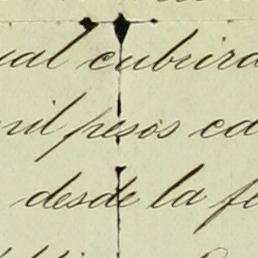 ual cubrirá
mil pesos ca
desde la fe